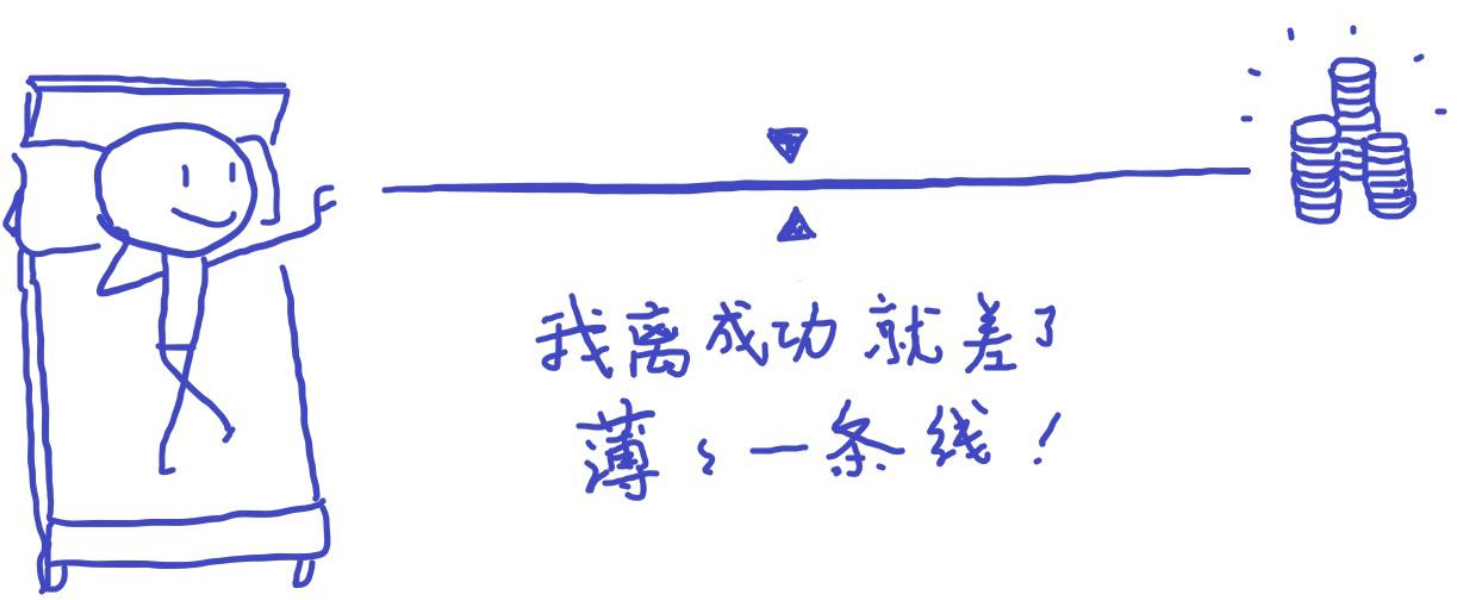 我离成功就差了
薄薄一条线！